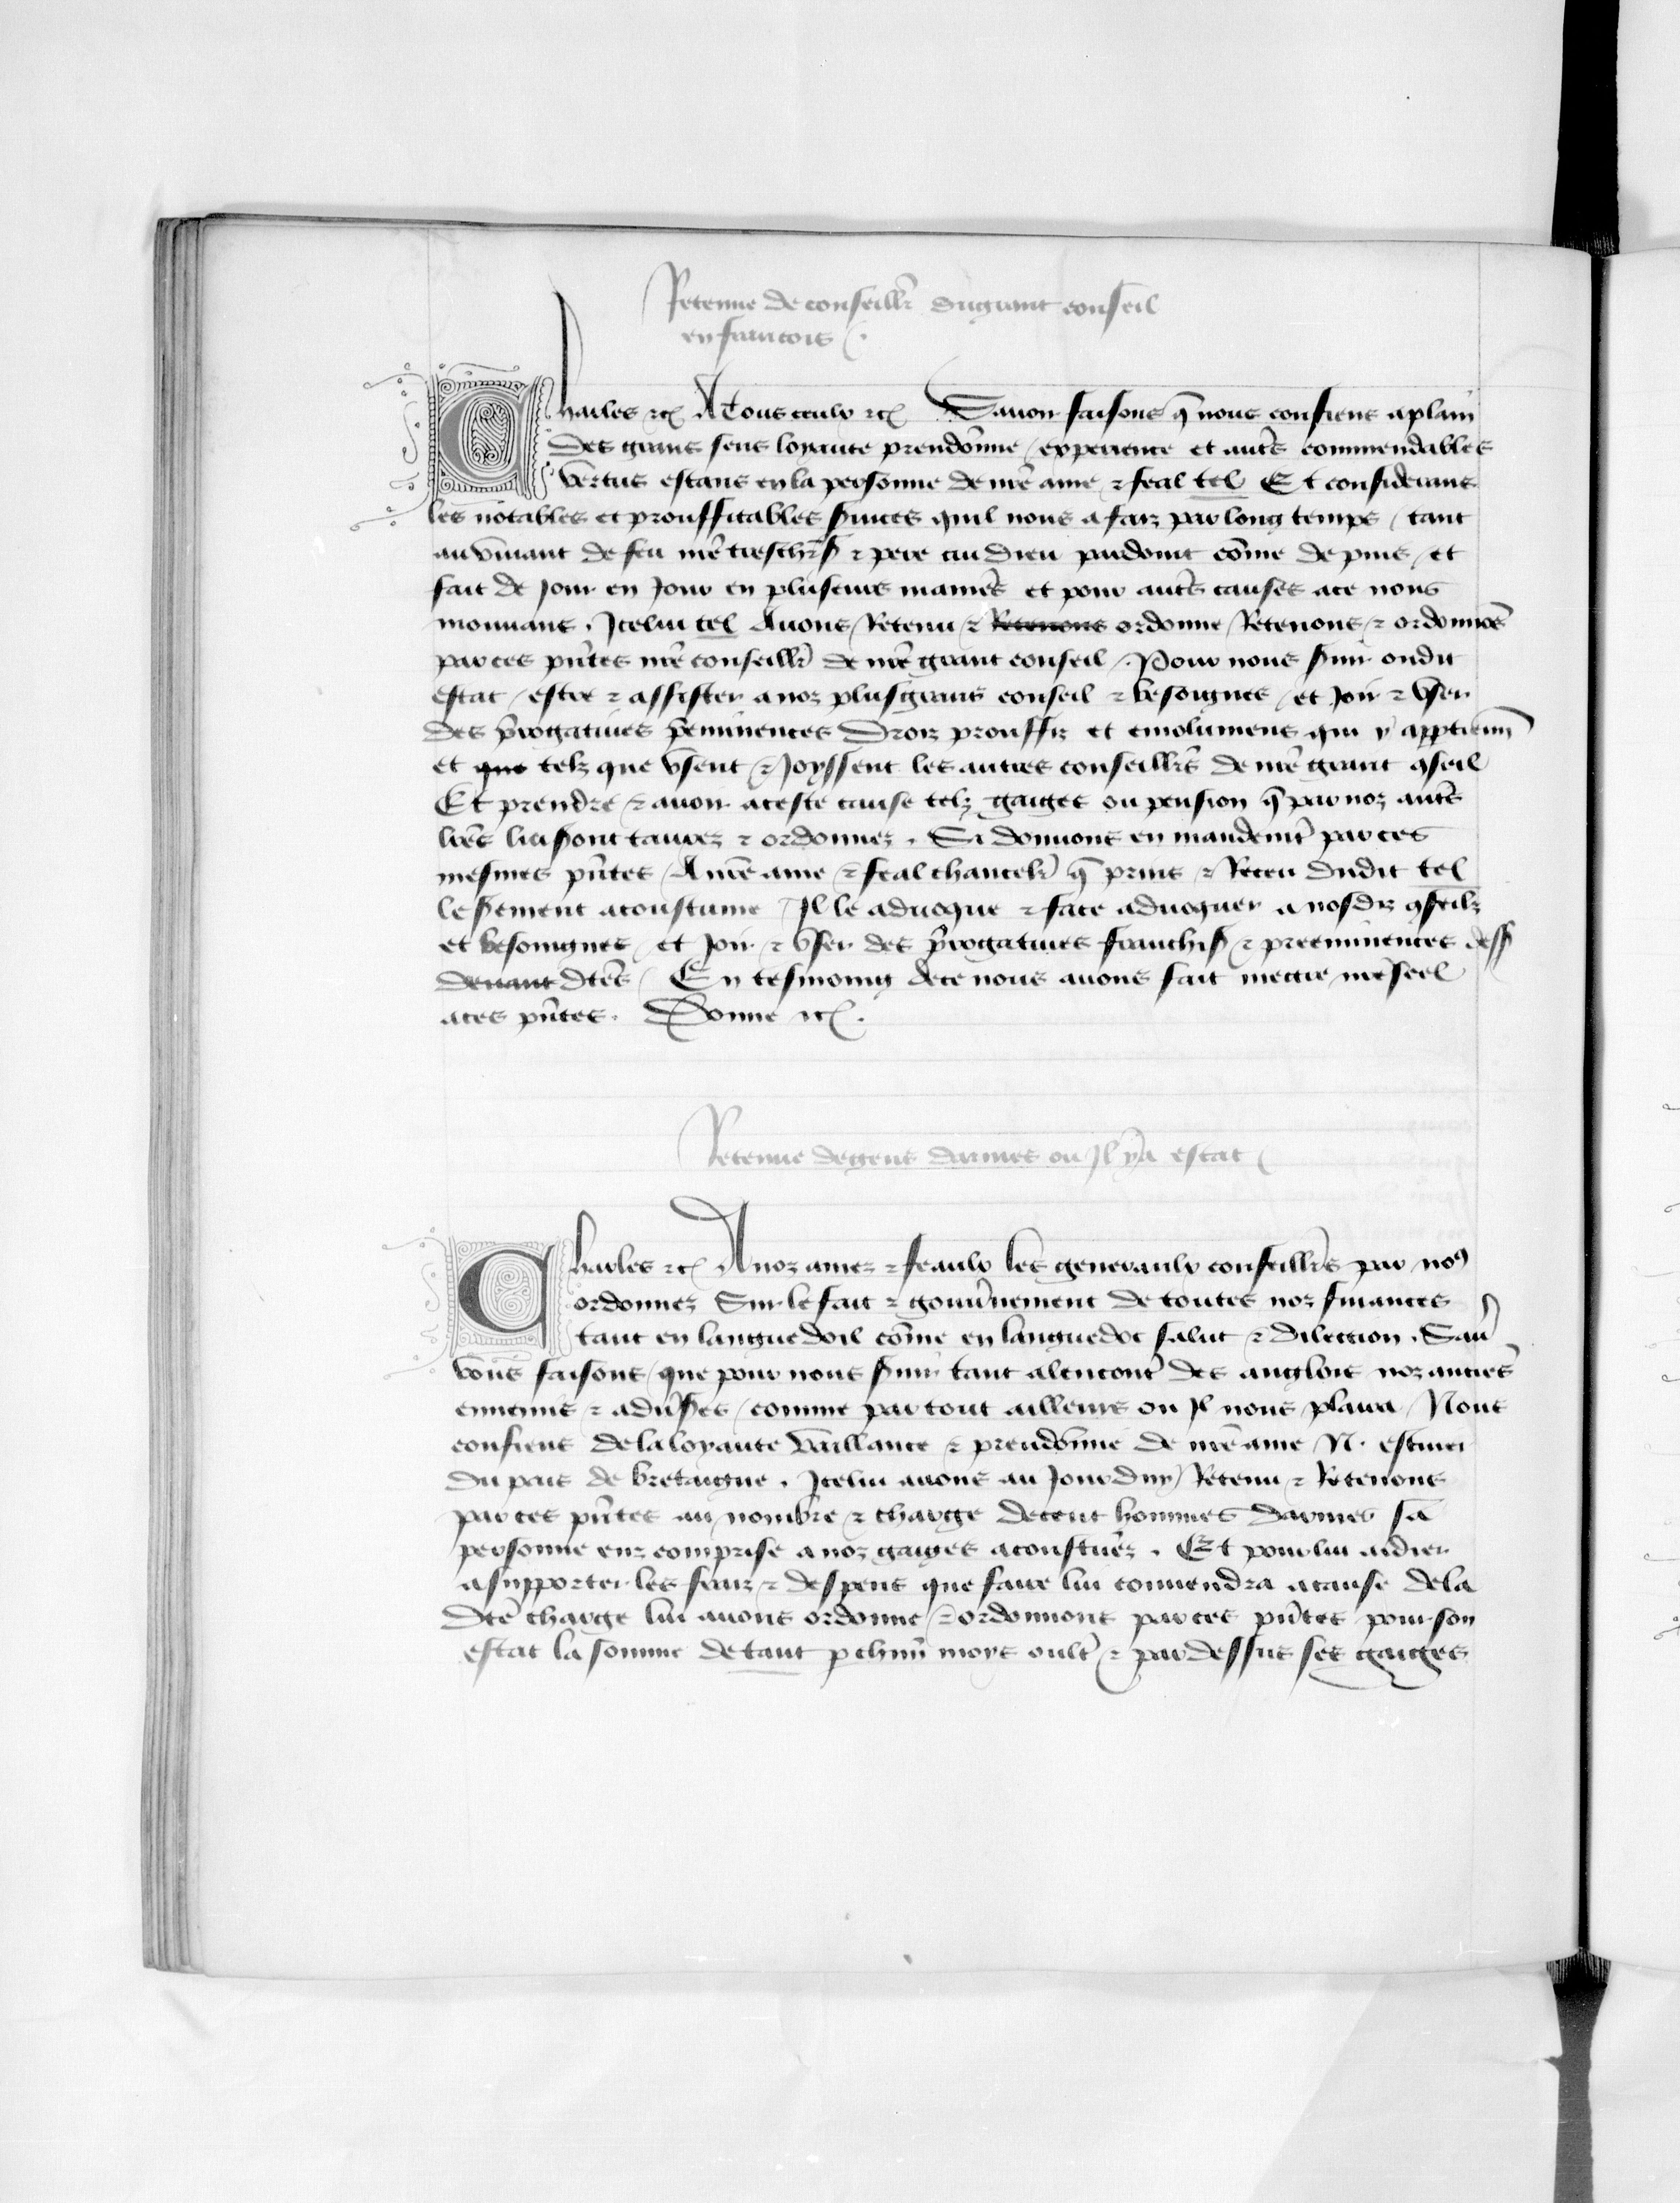 Retenue de conseillr̄ du grant conseil
en francois
Charles etc̄ A tous ceulx etc̄ Sauoir faisons q̄ nous confiens aplain
des grans sens loyaute preudōmie experience et autr̄s commendables
vertus estans en la personne de nr̄e ame et feal tel Et considerans
les notables et prouffitables s̄uices quil nous a faiz par long temps tant
au viuant de feu nr̄e treschr̄ s̄ et pere cui dieu pardoint cōme depuis et
fait de jour en jour en plusieurs manier̄s et pour autr̄s causes ace nous
mouuans . Icelui tel Auons Retenu et Retenons ordonne Retenons et ordonnōs
par ces pn̄tes nr̄e conseillr̄ de nr̄e grant conseil . Pour nous s̄uir oudit
estat estre et assister a noz plus grans conseil et besoignes et joir et vser
des p̄rogatiues p̄eminences droiz prouffiz et emolumens qui y apptienn̄
et que telz que vsent et Joyssent les autres conseillr̄s de nr̄e grant ꝯseil
Et prendre et auoir aceste cause telz gaiges ou pension q̄ par noz autr̄s
lr̄es lui s̄ont tauxez et ordonnez . Si donnons en mandemt̄ par ces
mesmes pn̄tes A nr̄e ame et feal chancelr̄ q̄ prins et Receu dudit tel
le s̄ement acoustume Il le aduoque et face aduoquer a nosdiz ꝯseilz
et besoingnes et joir et vser des p̄rogatiues franchis̄ et preeminences dess̄
deuant dt̄es En tesmoing dece nous auons fait mettre nr̄e seel
aces pn̄tes . Donne etc̄ .
Retenue de gens darmes ou Il y a estat
Charles etc̄ A noz amez et feaulx les generaulx conseillr̄s par noꝯ
ordonnez Sur le fait et gouūnement de toutes noz finances
tant en langue doil cōme en languedoc salut et dilection . Sau̅
vous faisons que pour nous s̄uir tant alencontr̄ des anglois noz anciēs
ennemis et adus̄es comme par tout ailleurs ou Il nous plaira Nous
confiens dela loyaute vaillance et preudōmie de nr̄e ame N. escuier
du pais de bretaigne . Icelui auons au jourduy Retenu et Retenons
par ces pn̄tes au nombre et charge decent hommes darmes sa
personne enz comprise a noz gaiges acoustūez . Et pour lui aidier
asupporter les fraiz et despens que faire lui conuendra acause dela
dt̄e charge lui auons ordonne et ordonnons par ces pn̄tes pour son
estat la somme de tant p chūn moys oultr̄ et pardessus ses gaiges